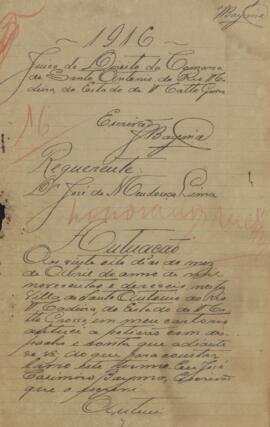 JBayma
1916
Juizo de Direito da Comarca
de Santo Antonio do Rio Ma-
deira do Estado de Matto Grosso
16
Escrivão
JBayma
Requerente:
Dr. José de Mendonça Lima
Autuação
Aos vinte oito dias do mez
de Abril do anno de mil
novecentos e dezeseis nesta
Villa de Santo Antonio do Rio
Madeira do Estado de Matto
Grosso em meu cartorio
autuei a petição com des-
pacho e conta que adiante
se vê; do que para constar
lavro este termo. Eu José
Bayma, Escrivão
que o escrevi.
Autuei